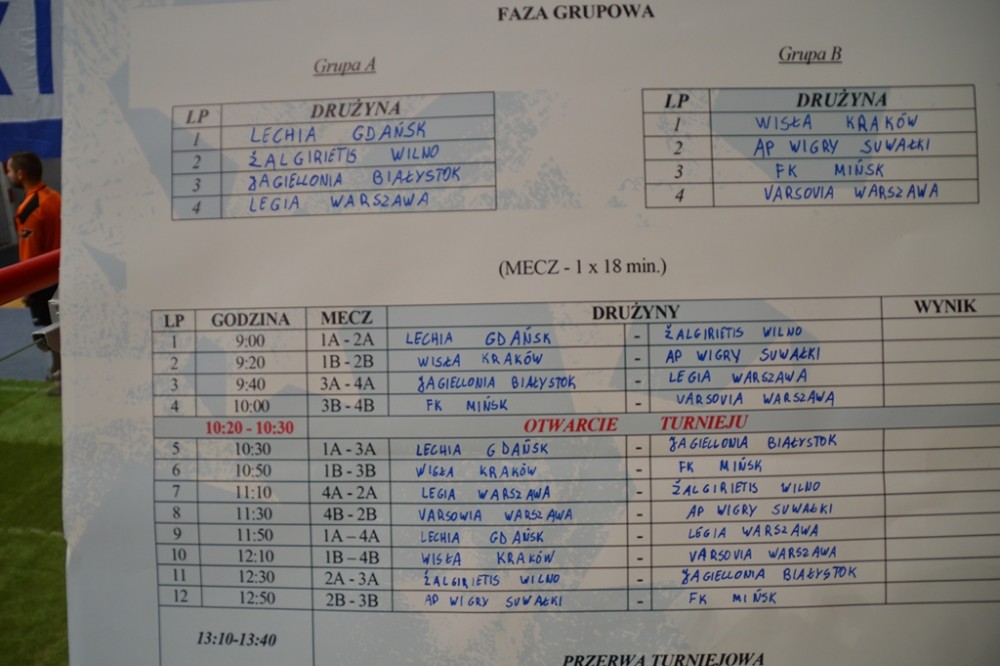 FAZA GRUPOWA
Grupa A
LP DRUŻYNA
1 LECHIA GDAŃSK
2 ŻALGIRIETIS WILNO
3 JAGIELLONIA BIAŁYSTOK
4 LEGIA WARSZAWA
Grupa B
LP DRUŻYNA
1 WISŁA KRAKÓW
2 AP WIGRY SUWAŁKI
3 FK MIŃSK
4 VARSOVIA WARSZAWA
(MECZ - 1 x 18 min.)
LP GODZINA MECZ DRUŻYNY WYNIK
1 9:00 1A - 2A LECHIA GDAŃSK - ŻALGIRIETIS WILNO
2 9:20 1B - 2B WISŁA KRAKÓW - AP WIGRY SUWAŁKI
3 9:40 3A - 4A JAGIELLONIA BIAŁYSTOK - LEGIA WARSZAWA
4 10:00 3B - 4B FK MIŃSK - VARSOVIA WARSZAWA
10:20 - 10:30 OTWARCIE TURNIEJU
5 10:30 1A - 3A LECHIA GDAŃSK - JAGIELLONIA BIAŁYSTOK
6 10:50 1B - 3B WISŁA KRAKÓW - FK MIŃSK
7 11:10 4A - 2A LEGIA WARSZAWA - ŻALGIRIETIS WILNO
8 11:30 4B - 2B VARSOWIA WARSZAWA - AP WIGRY SUWAŁKI
9 11:50 1A – 4A LECHIA GDAŃSK - LEGIA WARSZAWA
10 12:10 1B – 4B WISŁA KRAKÓW - VARSOVIA WARSZAWA
11 12:30 2A - 3A ŻALGIRIETIS WILNO - JAGIELLONIA BIAŁYSTOK
12 12:50 2B - 3B AP WIGRY SUWAŁKI - FK MIŃSK
13:10-13:40 PRZERWA TURNIEJOWA